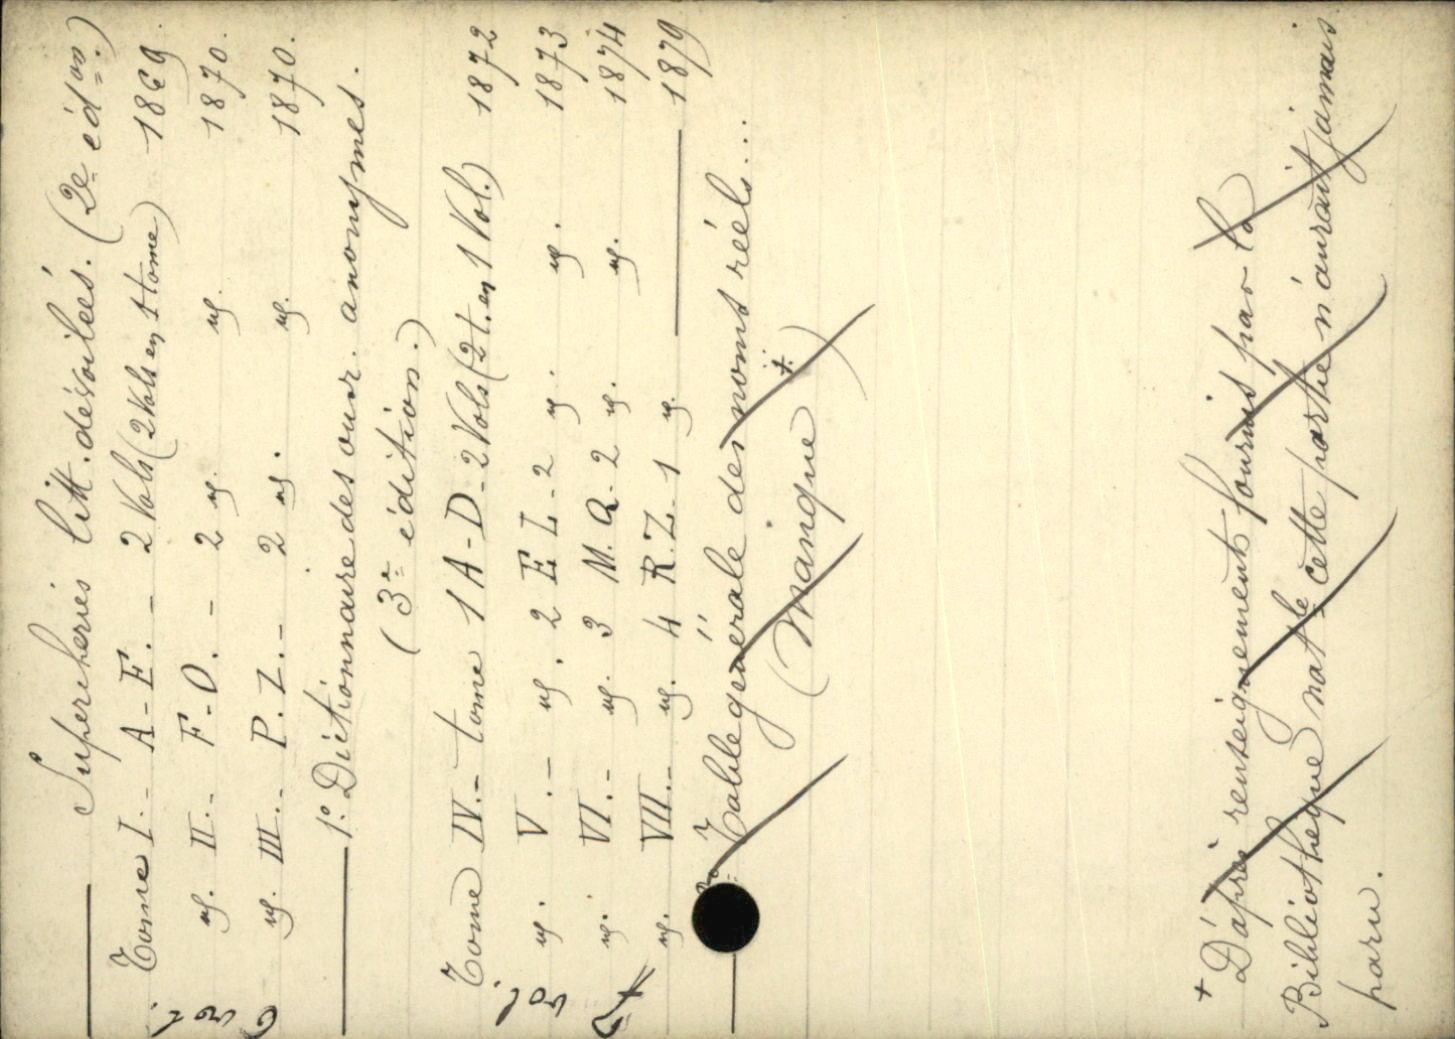 Supercheries litt. dévoilées. (2e édon.)
Tome I. - A-E. - 2 Vols (2 Vols en 1 tome) 1869.
id. II. - F-O. - 2 id. id. 1870.
id. III. - P.Z. - 2 id. id. 1870.
6 vol.
1º. Dictionnaire des ouvr. anonymes.
(3e édition.)
Tome IV. - tome 1 A-D - 2 Vols (2 t. en 1 Vol.) 1872
id. V. - id. 2 E L - 2 id. id. 1873
id. VI. - id. 3 M.Q. - 2 id. id. 1874
id. VII. - id. 4 R.Z. - 1 id. 1879
7 vol.
Table générale des noms réels...
(Manque +)
+ D'après renseignements fournis par la
Bibliothèque natle cette partie n'aurait jamais
paru.